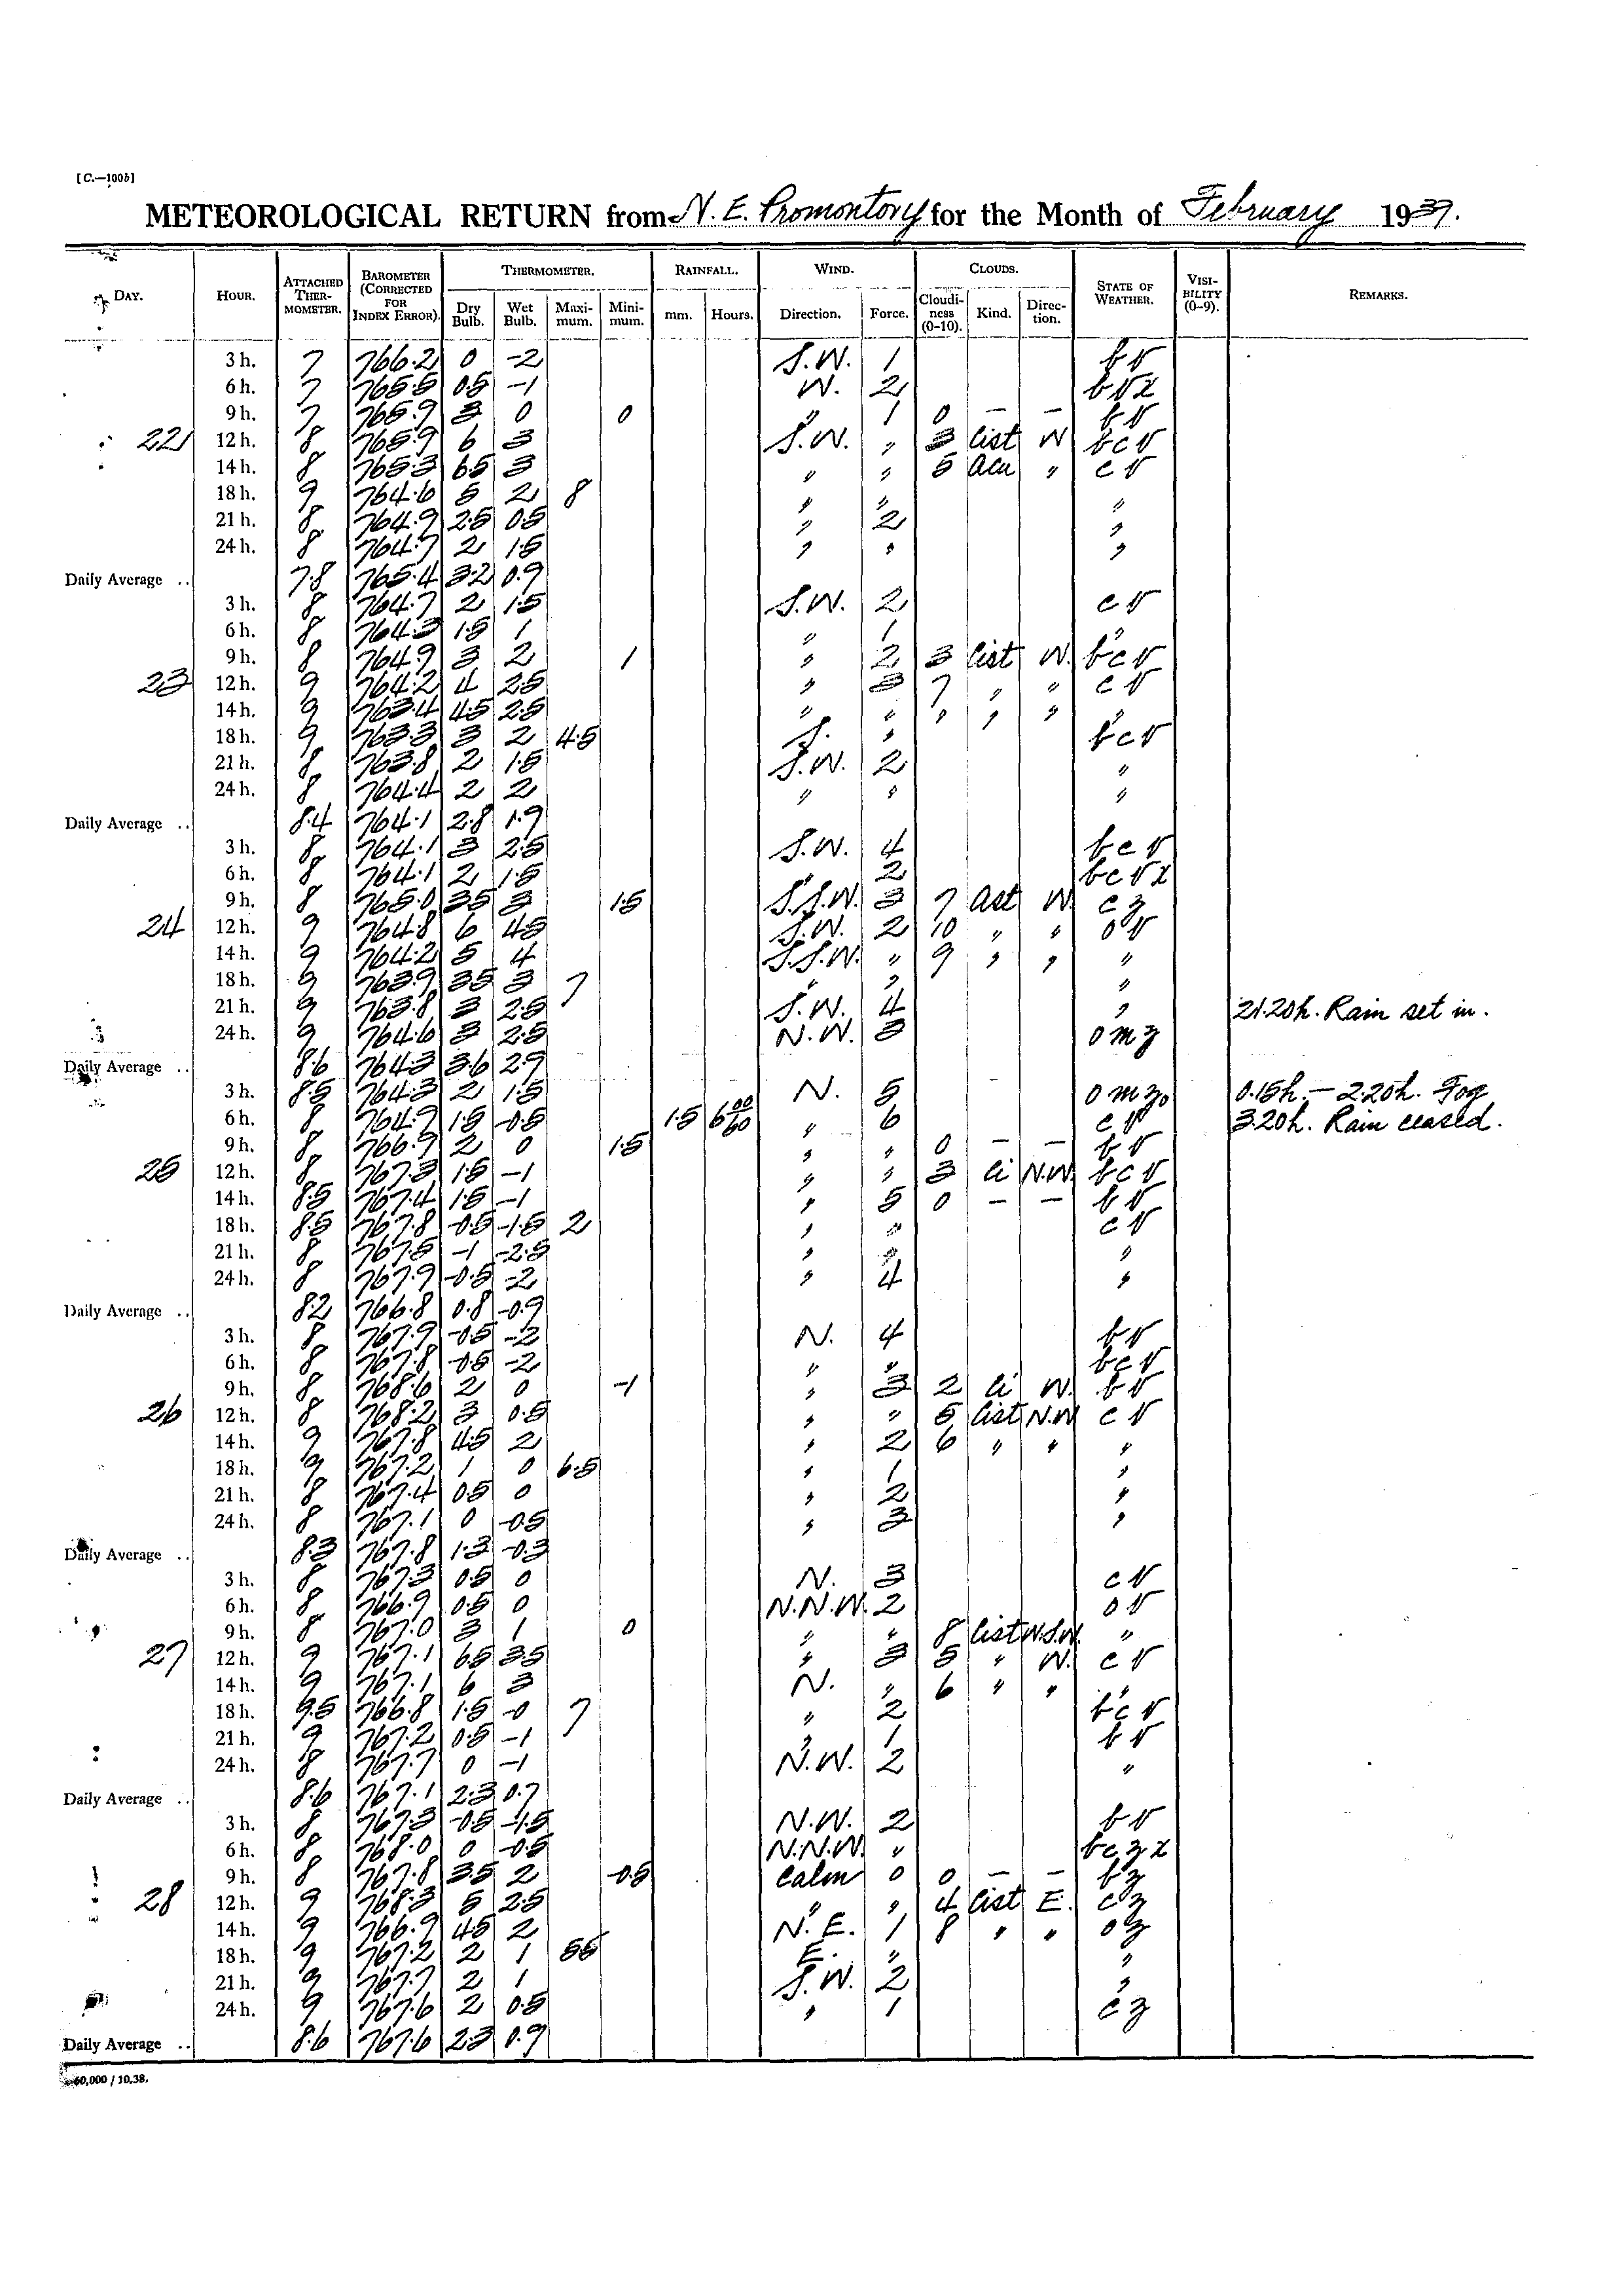 [C.—100b]
METEOROLOGICAL RETURN from N. E. Promontory for the Month of February 1939.
DAY. HOUR. ATTACHED THERMOMETER. BAROMETER (CORRECTED FOR INDEX ERROR). THERMOMETER. Dry Bulb. Wet Bulb. Maximum. Minimum. RAINFALL. mm. Hours. WIND. Direction. Force. CLOUDS. Cloudiness (0–10). Kind. Direction. STATE OF WEATHER. VISIBILITY (0–9). REMARKS.
3 h. 7 766.2 0 -2 S.W. 1 b v
6 h. 7 765.5 0.5 -1 W. 2 b v x
9 h. 7 765.9 3 0 0 " 1 0 — — b v
22 12 h. 8 765.9 6 3 S.W. " 3 Cist W b c v
14 h. 8 765.3 6.5 3 " " 5 Acu " c v
18 h. 9 764.6 5 2 8 " " "
21 h. 8 764.9 2.5 0.5 " 2 "
24 h. 8 764.7 2 1.5 " " "
Daily Average .. 7.8 765.4 3.2 0.9
3 h. 8 764.7 2 1.5 S.W. 2 c v
6 h. 8 764.3 1.5 1 " 1 "
9 h. 8 764.9 3 2 1 " 2 3 Cist W. b c v
23 12 h. 9 764.2 4 2.5 " 3 7 " " c v
14 h. 9 763.4 4.5 2.5 " " " " " "
18 h. 9 763.3 3 2 4.5 S. " b c v
21 h. 8 763.8 2 1.5 S.W. 2 "
24 h. 8 764.4 2 2 " " "
Daily Average .. 8.4 764.1 2.8 1.9
3 h. 8 764.1 3 2.5 S.W. 4 b c v
6 h. 8 764.1 2 1.5 " 2 b c v x
9 h. 8 765.0 3.5 3 1.5 S.S.W. 3 7 Ast W c z
24 12 h. 9 764.8 6 4.5 S.W. 2 10 " " o v
14 h. 9 764.2 5 4 S.S.W. " 9 " " "
18 h. 9 763.9 3.5 3 7 " " "
21 h. 9 763.8 3 2.5 S.W. 4 " 21.20h. Rain set in.
24 h. 9 764.6 3 2.5 N.W. 3 o m z
Daily Average .. 8.6 764.3 3.6 2.9
3 h. 8.5 764.3 2 1.5 N. 5 o m z 0.15h. — 2.20h. Fog
6 h. 8 764.7 1.5 -0.5 1.5 6 00/60 " 6 c v 3.20h. Rain ceased.
9 h. 8 766.9 2 0 1.5 " " 0 — — b v
25 12 h. 8 767.3 1.5 -1 " " 3 Ci N.W. b c v
14 h. 8.5 767.4 1.5 -1 " 5 0 — — b v
18 h. 8.5 767.8 -0.5 -1.5 2 " " c v
21 h. 8 767.5 -1 -2.5 " " "
24 h. 8 767.9 -0.5 -2 " 4 "
Daily Average .. 8.2 766.8 0.8 -0.9
3 h. 8 767.9 -0.5 -2 N. 4 b v
6 h. 8 767.8 -0.5 -2 " " b c v
9 h. 8 768.6 2 0 -1 " 3 2 Ci W. b v
26 12 h. 8 768.2 3 0.5 " " 5 Cist N.W c v
14 h. 9 767.8 4.5 2 " 2 6 " " "
18 h. 9 767.2 1 0 6.5 " 1 "
21 h. 8 767.4 0.5 0 " 2 "
24 h. 8 767.1 0 -0.5 " 3 "
Daily Average .. 8.3 767.8 1.3 -0.3
3 h. 8 767.3 0.5 0 N. 3 c v
6 h. 8 766.9 0.5 0 N.N.W. 2 o v
9 h. 8 767.0 3 1 0 " " 8 Cist W.S.W. "
27 12 h. 9 767.1 6.5 3.5 " 3 5 " W. c v
14 h. 9 767.1 6 3 N. " 6 " " "
18 h. 9.5 766.8 1.5 -0 7 " 2 b c v
21 h. 9 767.2 0.5 -1 " 1 b v
24 h. 8 767.7 0 -1 N.W. 2 "
Daily Average .. 8.6 767.1 2.3 0.7
3 h. 8 767.3 -0.5 -1.5 N.W. 2 b v
6 h. 8 768.0 0 -0.5 N.N.W. " b c z x
9 h. 8 767.8 3.5 2 -0.5 Calm 0 0 — — b z
28 12 h. 9 768.3 5 2.5 " " 4 Cist E. c z
14 h. 9 766.9 4.5 2 N. E. 1 8 " " o z
18 h. 9 767.2 2 1 5.5 E. " "
21 h. 9 767.7 2 1 S.W. 2 "
24 h. 9 767.6 2 0.5 " 1 c z
Daily Average .. 8.6 767.6 2.3 0.9
60,000 / 10.38.